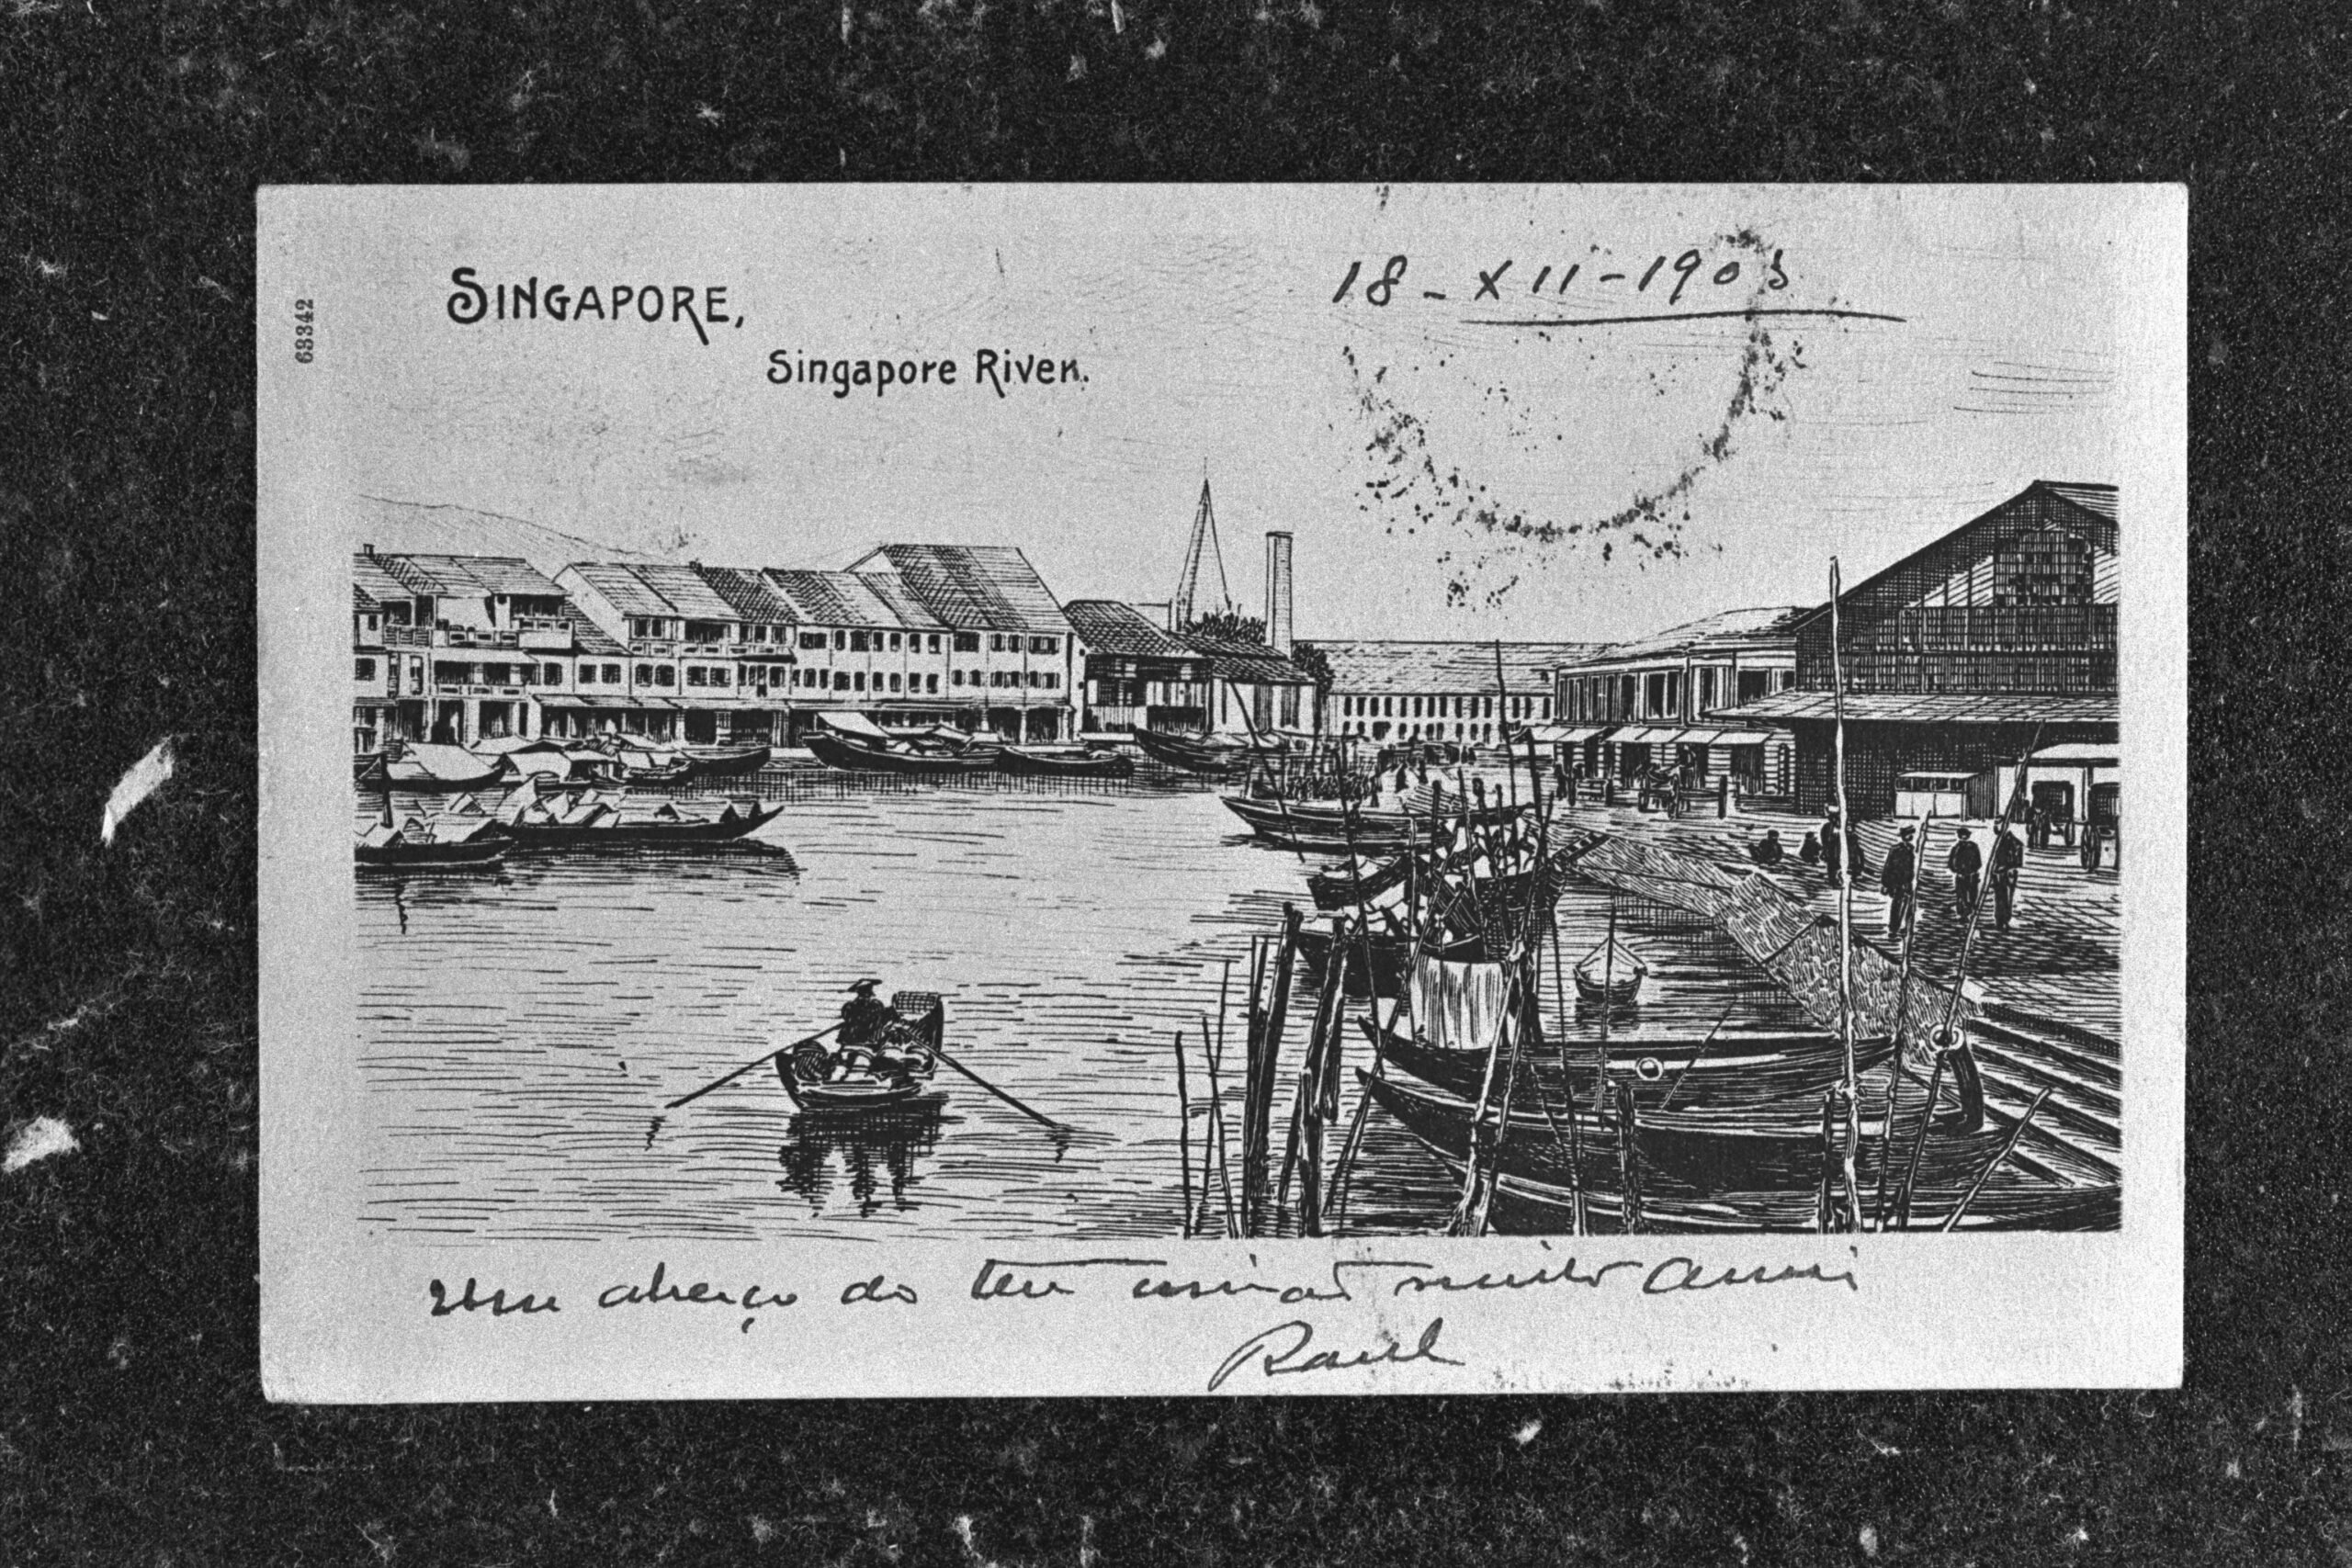 63342
SINGAPORE,
Singapore River.
18-XII-1903
Um abraço do teu irmão muito amigo
Raul